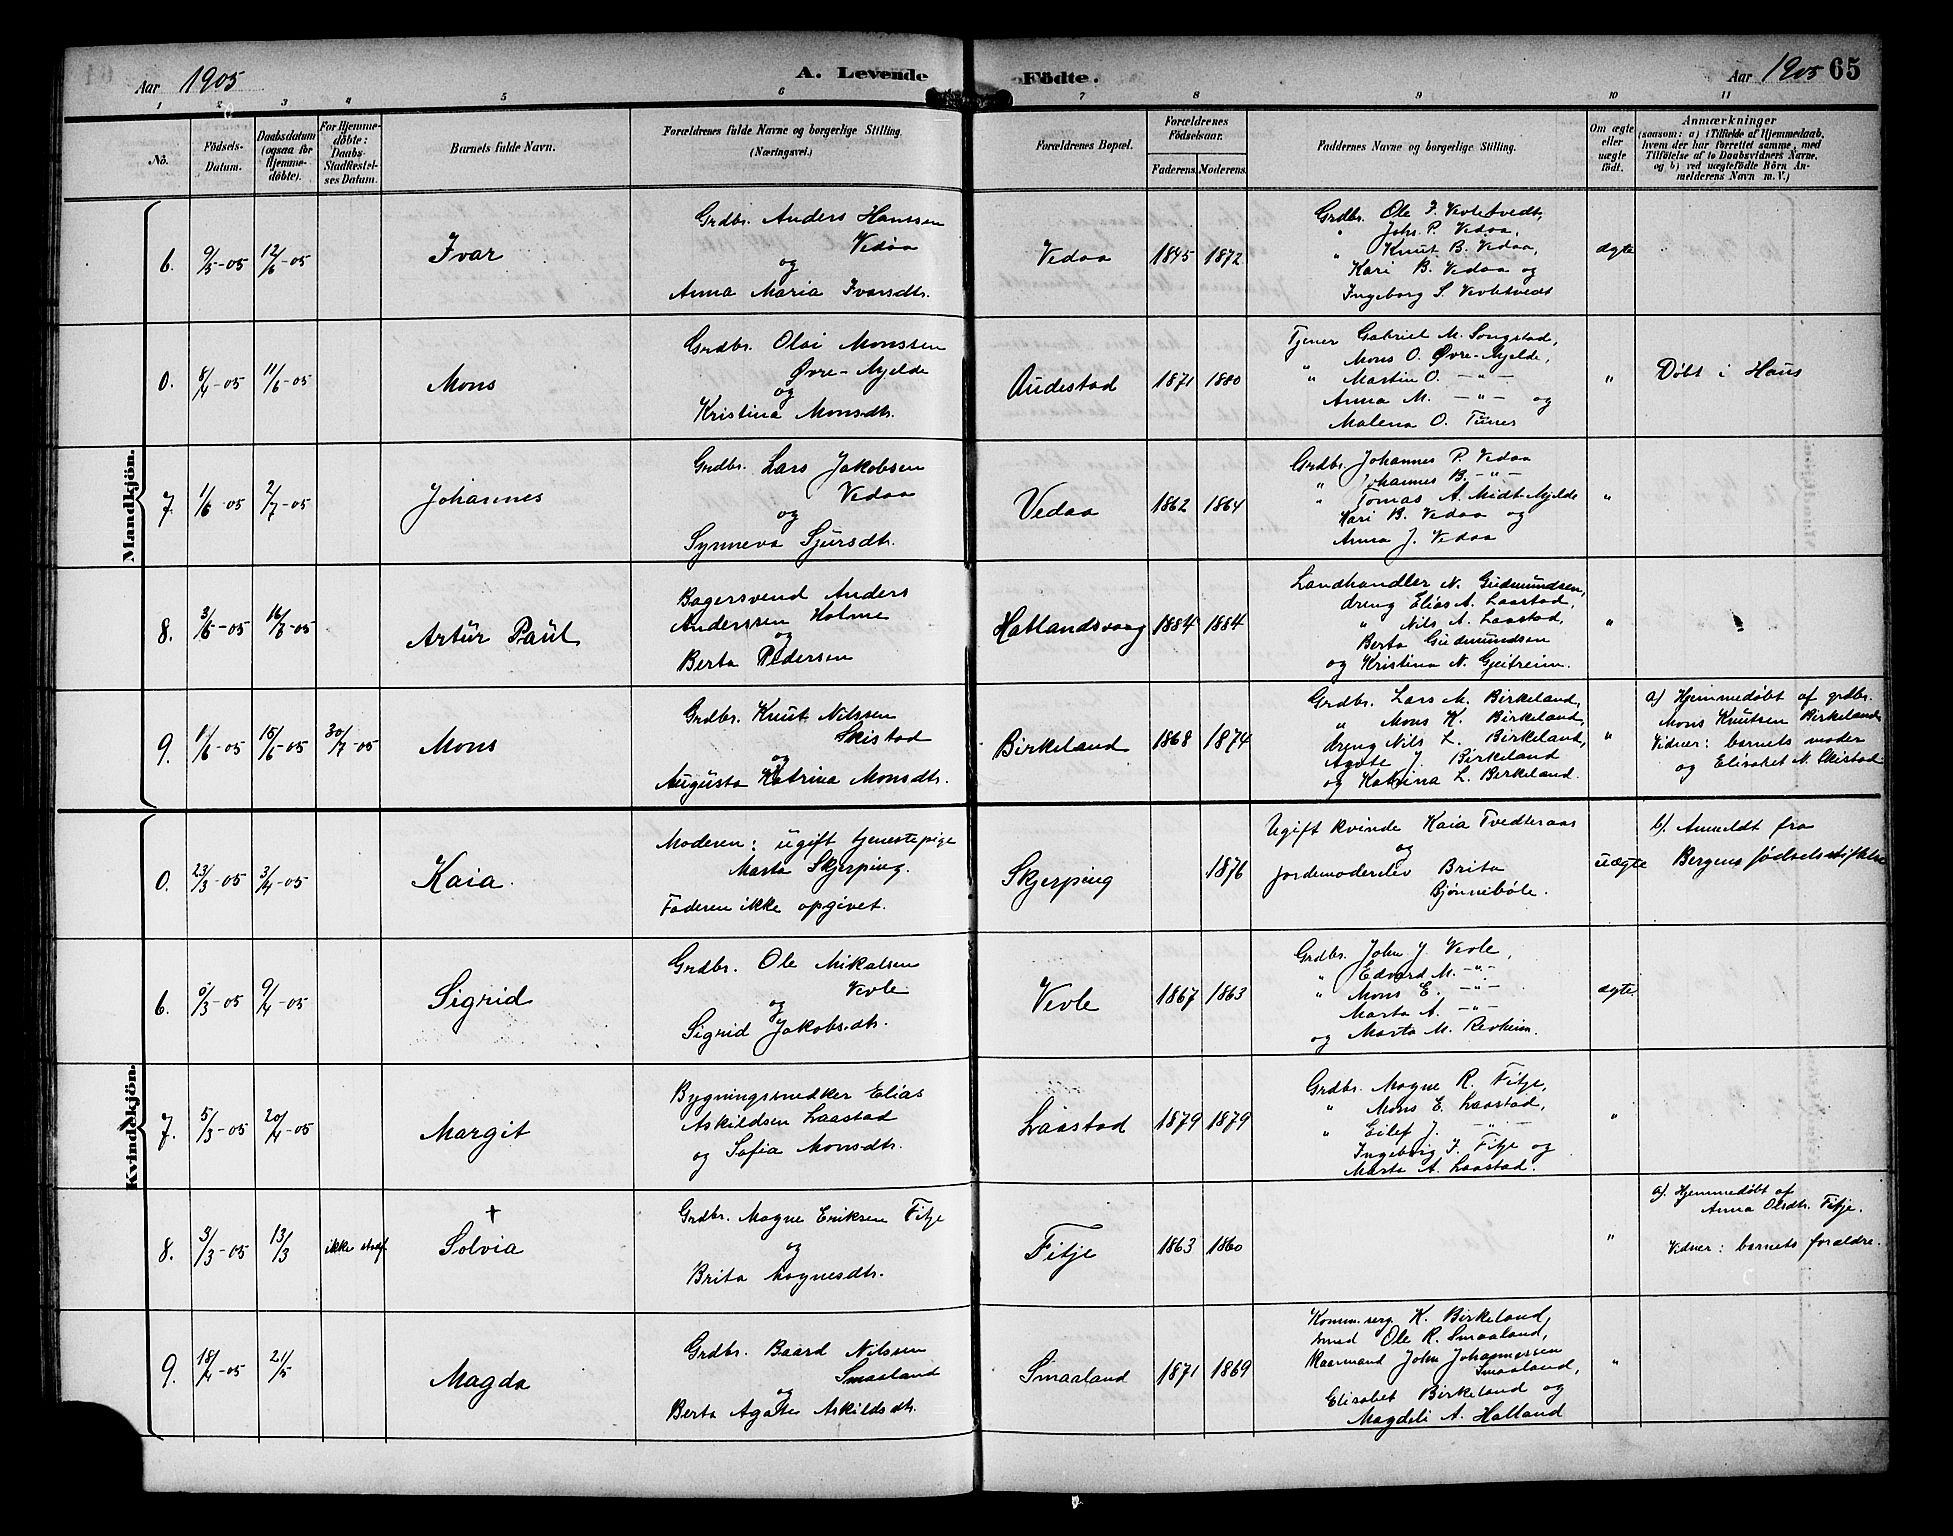 Aar 1905
A. Levende
Fødte.
Aar 1905 65
1 2 3 4 5 6 7 8 9 10 11
No.
Fødsels-
Datum.
Daabsdatum
(ogsaa for
Hjemme-
døbte).
For Hjemme-
døbte:
Daabs-
Stadfæstel-
ses Datum.
Barnets fulde Navn.
Forældrenes fulde Navne og borgerlige Stilling.
(Næringsvei.)
Forældrenes Bopæl.
Forældrenes
Fødselsaar.
Faderens. Moderens.
Faddernes Navne og borgerlige Stilling.
Om ægte
eller
uægte
født.
Anmærkninger
(saasom: a) i Tilfælde af Hjemmedaab,
hvem der har forrettet samme, med
Tilføielse af to Daabsvidners Navne,
og b) ved uægtefødte Börn An-
melderens Navn m. V.)
Mandkjön.
6. 9/5-05 12/6-05
Ivar
Grdbr. Anders Hanssen
Vedaa
og
Anna Maria Ivarsdtr.
Vedaa
1845 1872
Grdbr. Ole I. Vevletvedt,
" Johs. P. Vedaa,
" Knut B. Vedaa,
Kari B. Vedaa og
Ingeborg S. Vevletvedt
ægte
0. 8/4-05 11/6-05
Mons
Grdbr. Olai Monssen
Øvre-Mjelde
og
Kristina Monsdtr.
Audestad
1871 1880
Tjener Gabriel M. Songstad,
" Mons O. Øvre-Mjelde,
" Martin O. -"-
Anna M. -"- og
Malena O. Tunes
"
Døbt i Haus
7. 1/6-05 2/7-05
Johannes
Grdbr. Lars Jakobsen
Vedaa
og
Synneva Sjursdtr.
Vedaa
1862 1864
Grdbr. Johannes P. Vedaa
" Johannes B. -"-
" Tomas A. Midt-Mjelde
Kari B. Vedaa og
Anna J. Vedaa
"
8. 3/6-05 16/6-05
Artur Paul
Bagersvend Anders
Anderssen Holme
og
Berta Pedersen
Hatlandsvaag
1884 1884
Landhandler N. Gudmundsen,
dreng Elias A. Laastad,
" Nils A. Laastad,
Berta Gudmundsen
og Kristina N. Gjeitreim.
"
9. 1/6-05 15/6-05 30/7-05
Mons
Grdbr. Knut Nilssen
Skistad
og
Augusta Katrina Monsdtr.
Birkeland
1868 1874
Grdbr. Lars M. Birkeland,
" Mons K. Birkeland,
dreng Nils L. Birkeland,
Agate J. Birkeland
og Katrina L. Birkeland.
"
a) Hjemmedøbt af grdbr.
Mons Knutsen Birkeland
Vidner: barnets moder
og Elisabet N. Skistad
Kvindekjön.
0. 23/3-05 3/4-05
Kaia.
Moderen: ugift tjenestepige
Marta Skjerping.
Faderen ikke opgivet.
Skjerping
1876
Ugift kvinde Kaia Tvedteraas
og
jordemoderelev Brita
Bjønnebøle.
uægte
b). Anmeldt fra
Bergens fødselsstiftelse
6. 9/4-05
Sigrid
Grdbr. Ole Mikalsen
Vevle
og
Sigrid Jakobsdtr.
Vevle
1867 1863
Grdbr. John J. Vevle,
" Edvard M. -"-
" Mons E. -"-
Marta A. -"-
og Marta M. Revheim.
ægte.
7. 5/3-05 20/4-05
Margit
Bygningssnedker Elias
Askildsen Laastad
og Sofia Monsdtr.
Laastad
1879 1879
Grdbr. Magne R. Fitje,
" Mons E. Laastad,
" Eilef J. -"-
Ingeborg I. Fitje og
Marta A. Laastad.
"
8. 3/3-05 13/3 ikke stadf.
†
Solvia
Grdbr. Magne Eriksen Fitje
og
Brita Magnesdtr.
Fitje
1863 1860
"
a). Hjemmedøbt af
Anna Olsdtr. Fitje.
Vidner: barnets forældre.
9. 18/4-05 21/5
Magda
Grdbr. Baard Nilssen
Smaaland
og
Berta Agate Askildsdtr.
Smaaland
1871 1869
Komm.serg. K. Birkeland,
smed Ole R. Smaaland,
Kaarmand John Johannessen
Smaaland,
Elisabet Birkeland og
Magdeli A. Hatland
"